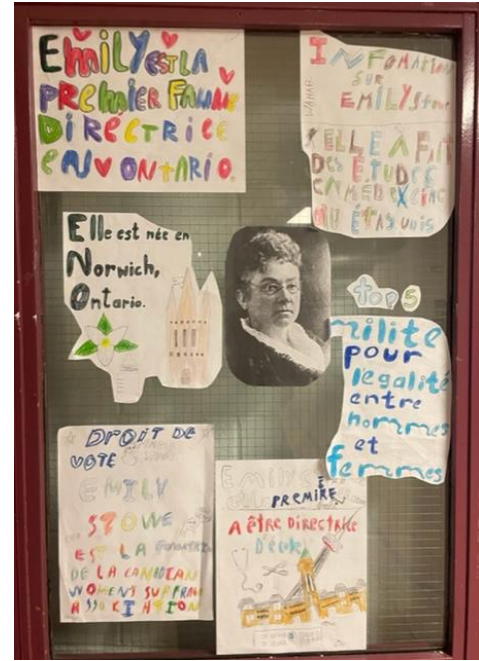 EmilY est LA
PREMIER FAMME
DIRECTRICE
EN ONTARIO.
INFOMATION
SUR
EMILYStowe
ELLE À FAIT
DES ÉTUDES
EN MEDEXCINE
AU ÉTAS UNIS
Elle est née en
Norwich,
Ontario.
tops
milite
pour
legalité
entre
hommes
et
femmes
DROIT DE
VOTE
EMILY
STOWE
EST LA
DE LA CANADIAN
WOMENS SUFFRAGE
ASSOKIATION
Emily
PREMIRE
A ÊTRE DIRECTRICE
D'école